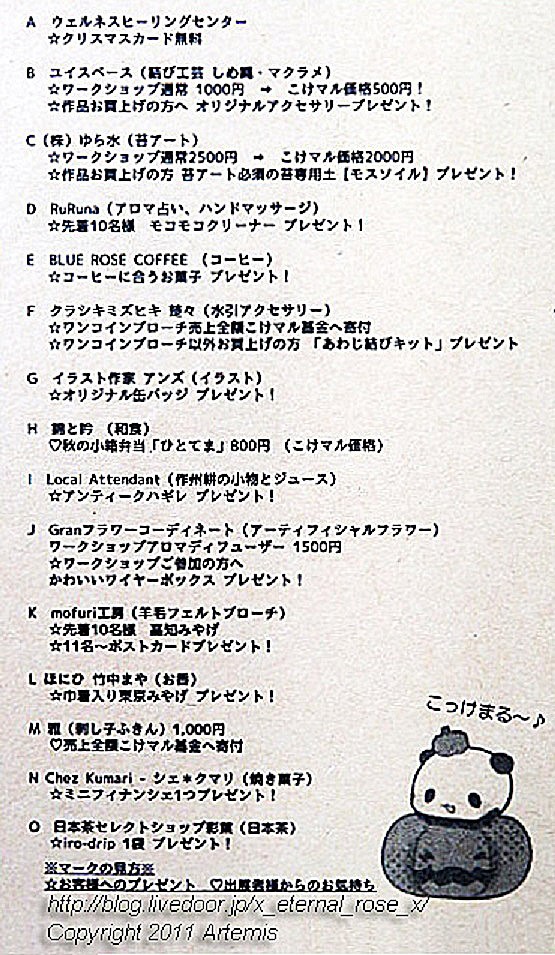 A ウェルネスヒーリングセンター
☆クリスマスカード無料
B ユイスペース（結び工芸 しめ縄・マクラメ）
☆ワークショップ通常 1000円 → こけマル価格500円！
☆作品お買上げの方へ オリジナルアクセサリープレゼント！
C（株）ゆら水（苔アート）
☆ワークショップ通常2500円 → こけマル価格2000円
☆作品お買上げの方 苔アート必須の苔専用土【モスソイル】プレゼント！
D RuRuna（アロマ占い、ハンドマッサージ）
☆先着10名様 モコモコクリーナー プレゼント！
E BLUE ROSE COFFEE （コーヒー）
☆コーヒーに合うお菓子 プレゼント！
F クラシキミズヒキ 々（水引アクセサリー）
☆ワンコインブローチ売上全額こけマル基金へ寄付
☆ワンコインブローチ以外お買上げの方 「あわじ結びキット」プレゼント
G イラスト作家 アンズ（イラスト）
☆オリジナル缶バッジ プレゼント！
H 錦と吟 （和食）
♡秋の小箱弁当「ひとてま」800円 （こけマル価格）
I Local Attendant（作州絣の小物とジュース）
☆アンティークハギレ プレゼント！
J Granフラワーコーディネート（アーティフィシャルフラワー）
ワークショップアロマディフューザー 1500円
☆ワークショップご参加の方へ
かわいいワイヤーボックス プレゼント！
K mofuri工房（羊毛フェルトブローチ）
☆先着10名様 高知みやげ
☆11名～ポストカードプレゼント！
L ほにひ 竹中まや（お香）
☆巾着入り東京みやげ プレゼント！
M 雅（刺し子ふきん）1,000円
♡売上全額こけマル基金へ寄付
N Chez Kumari - シェ＊クマリ（焼き菓子）
☆ミニフィナンシェ1つプレゼント！
O 日本茶セレクトショップ彩葉（日本茶）
☆iro-drip 1袋 プレゼント！
※マークの見方※
☆お客様へのプレゼント ♡出展者様からのお気持ち
こっけまる～♪
http://blog.livedoor.jp/x_eternal_rose_x/
Copyright 2011 Artemis